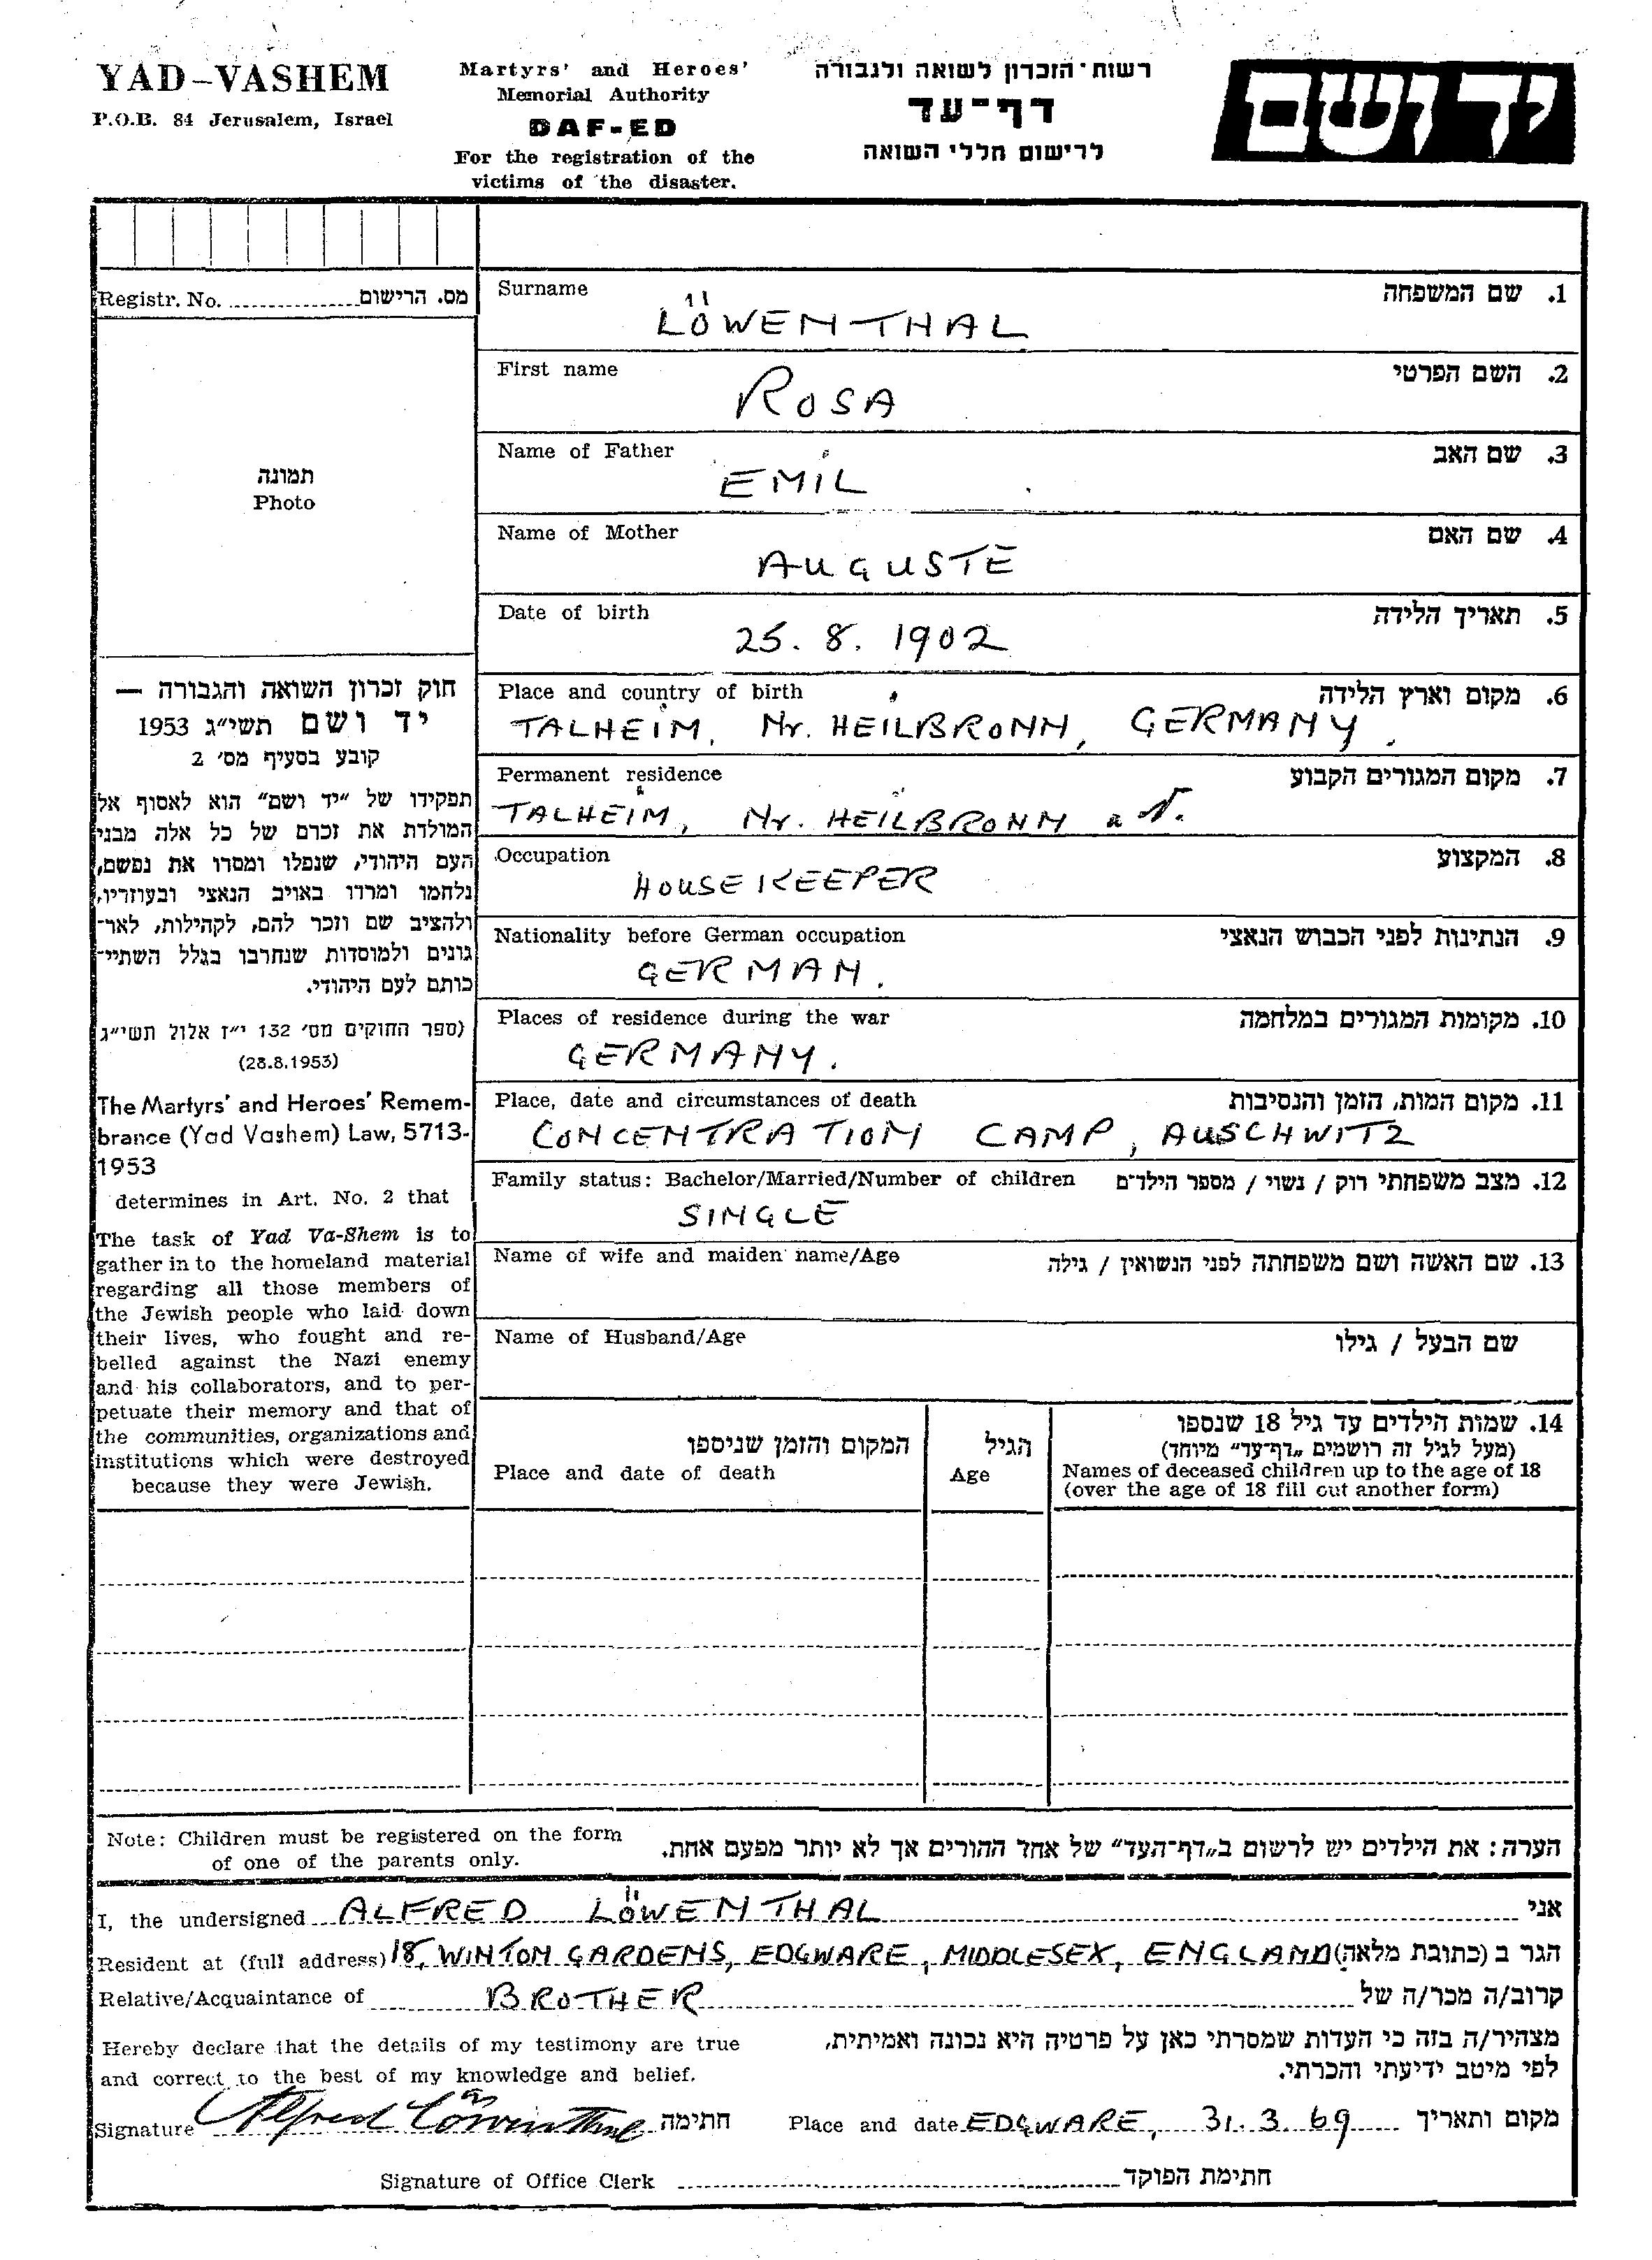 YAD-VASHEM
P.O.B. 84 Jerusalem, Israel
Martyrs' and Heroes'
Memorial Authority
DAF-ED
For the registration of the
victims of the disaster.
רשות-הזכרון לשואה ולגבורה
דף-עד
לרישום חללי השואה
יד ושם
Registr. No. מס. הרישום
תמונה
Photo
חוק זכרון השואה והגבורה —
יד ושם תשי"ג 1953
קובע בסעיף מס' 2
תפקידו של "יד ושם" הוא לאסוף אל
המולדת את זכרם של כל אלה מבני
העם היהודי, שנפלו ומסרו את נפשם,
נלחמו ומרדו באויב הנאצי ובעוזריו,
ולהציב שם וזכר להם, לקהילות, לאר-
גונים ולמוסדות שנחרבו בגלל השתיי-
כותם לעם היהודי.
(ספר החוקים מס' 132 י"ז אלול תשי"ג
(28.8.1953)
The Martyrs' and Heroes' Remem-
brance (Yad Vashem) Law, 5713-
1953
determines in Art. No. 2 that
The task of Yad Va-Shem is to
gather in to the homeland material
regarding all those members of
the Jewish people who laid down
their lives, who fought and re-
belled against the Nazi enemy
and his collaborators, and to per-
petuate their memory and that of
the communities, organizations and
institutions which were destroyed
because they were Jewish.
Surname 1. שם המשפחה
LÖWENTHAL
First name 2. השם הפרטי
ROSA
Name of Father 3. שם האב
EMIL
Name of Mother 4. שם האם
AUGUSTE
Date of birth 5. תאריך הלידה
25. 8. 1902
Place and country of birth 6. מקום וארץ הלידה
TALHEIM, Nr. HEILBRONN, GERMANY.
Permanent residence 7. מקום המגורים הקבוע
TALHEIM, Nr. HEILBRONN a N.
Occupation 8. המקצוע
HOUSEKEEPER
Nationality before German occupation 9. הנתינות לפני הכבוש הנאצי
GERMAN.
Places of residence during the war 10. מקומות המגורים במלחמה
GERMANY.
Place, date and circumstances of death 11. מקום המות, הזמן והנסיבות
CONCENTRATION CAMP, AUSCHWITZ
Family status: Bachelor/Married/Number of children 12. מצב משפחתי רוק / נשוי / מספר הילדים
SINGLE
Name of wife and maiden name/Age 13. שם האשה ושם משפחתה לפני הנשואין / גילה
Name of Husband/Age שם הבעל / גילו
המקום והזמן שניספו
Place and date of death
הגיל
Age
14. שמות הילדים עד גיל 18 שנספו
(מעל לגיל זה רושמים "דף-עד" מיוחד)
Names of deceased children up to the age of 18
(over the age of 18 fill out another form)
Note: Children must be registered on the form
of one of the parents only.
הערה: את הילדים יש לרשום ב"דף-העד" של אחד ההורים אך לא יותר מפעם אחת.
I, the undersigned ALFRED LÖWENTHAL אני
Resident at (full address) 18, WINTON GARDENS, EDGWARE, MIDDLESEX, ENGLAND הגר ב (כתובת מלאה)
Relative/Acquaintance of BROTHER קרוב/ה מכר/ה של
Hereby declare that the details of my testimony are true
and correct to the best of my knowledge and belief.
מצהיר/ה בזה כי העדות שמסרתי כאן על פרטיה היא נכונה ואמיתית,
לפי מיטב ידיעתי והכרתי.
Signature Alfred Löwenthal חתימה Place and date EDGWARE, 31. 3. 69 מקום ותאריך
Signature of Office Clerk חתימת הפוקד